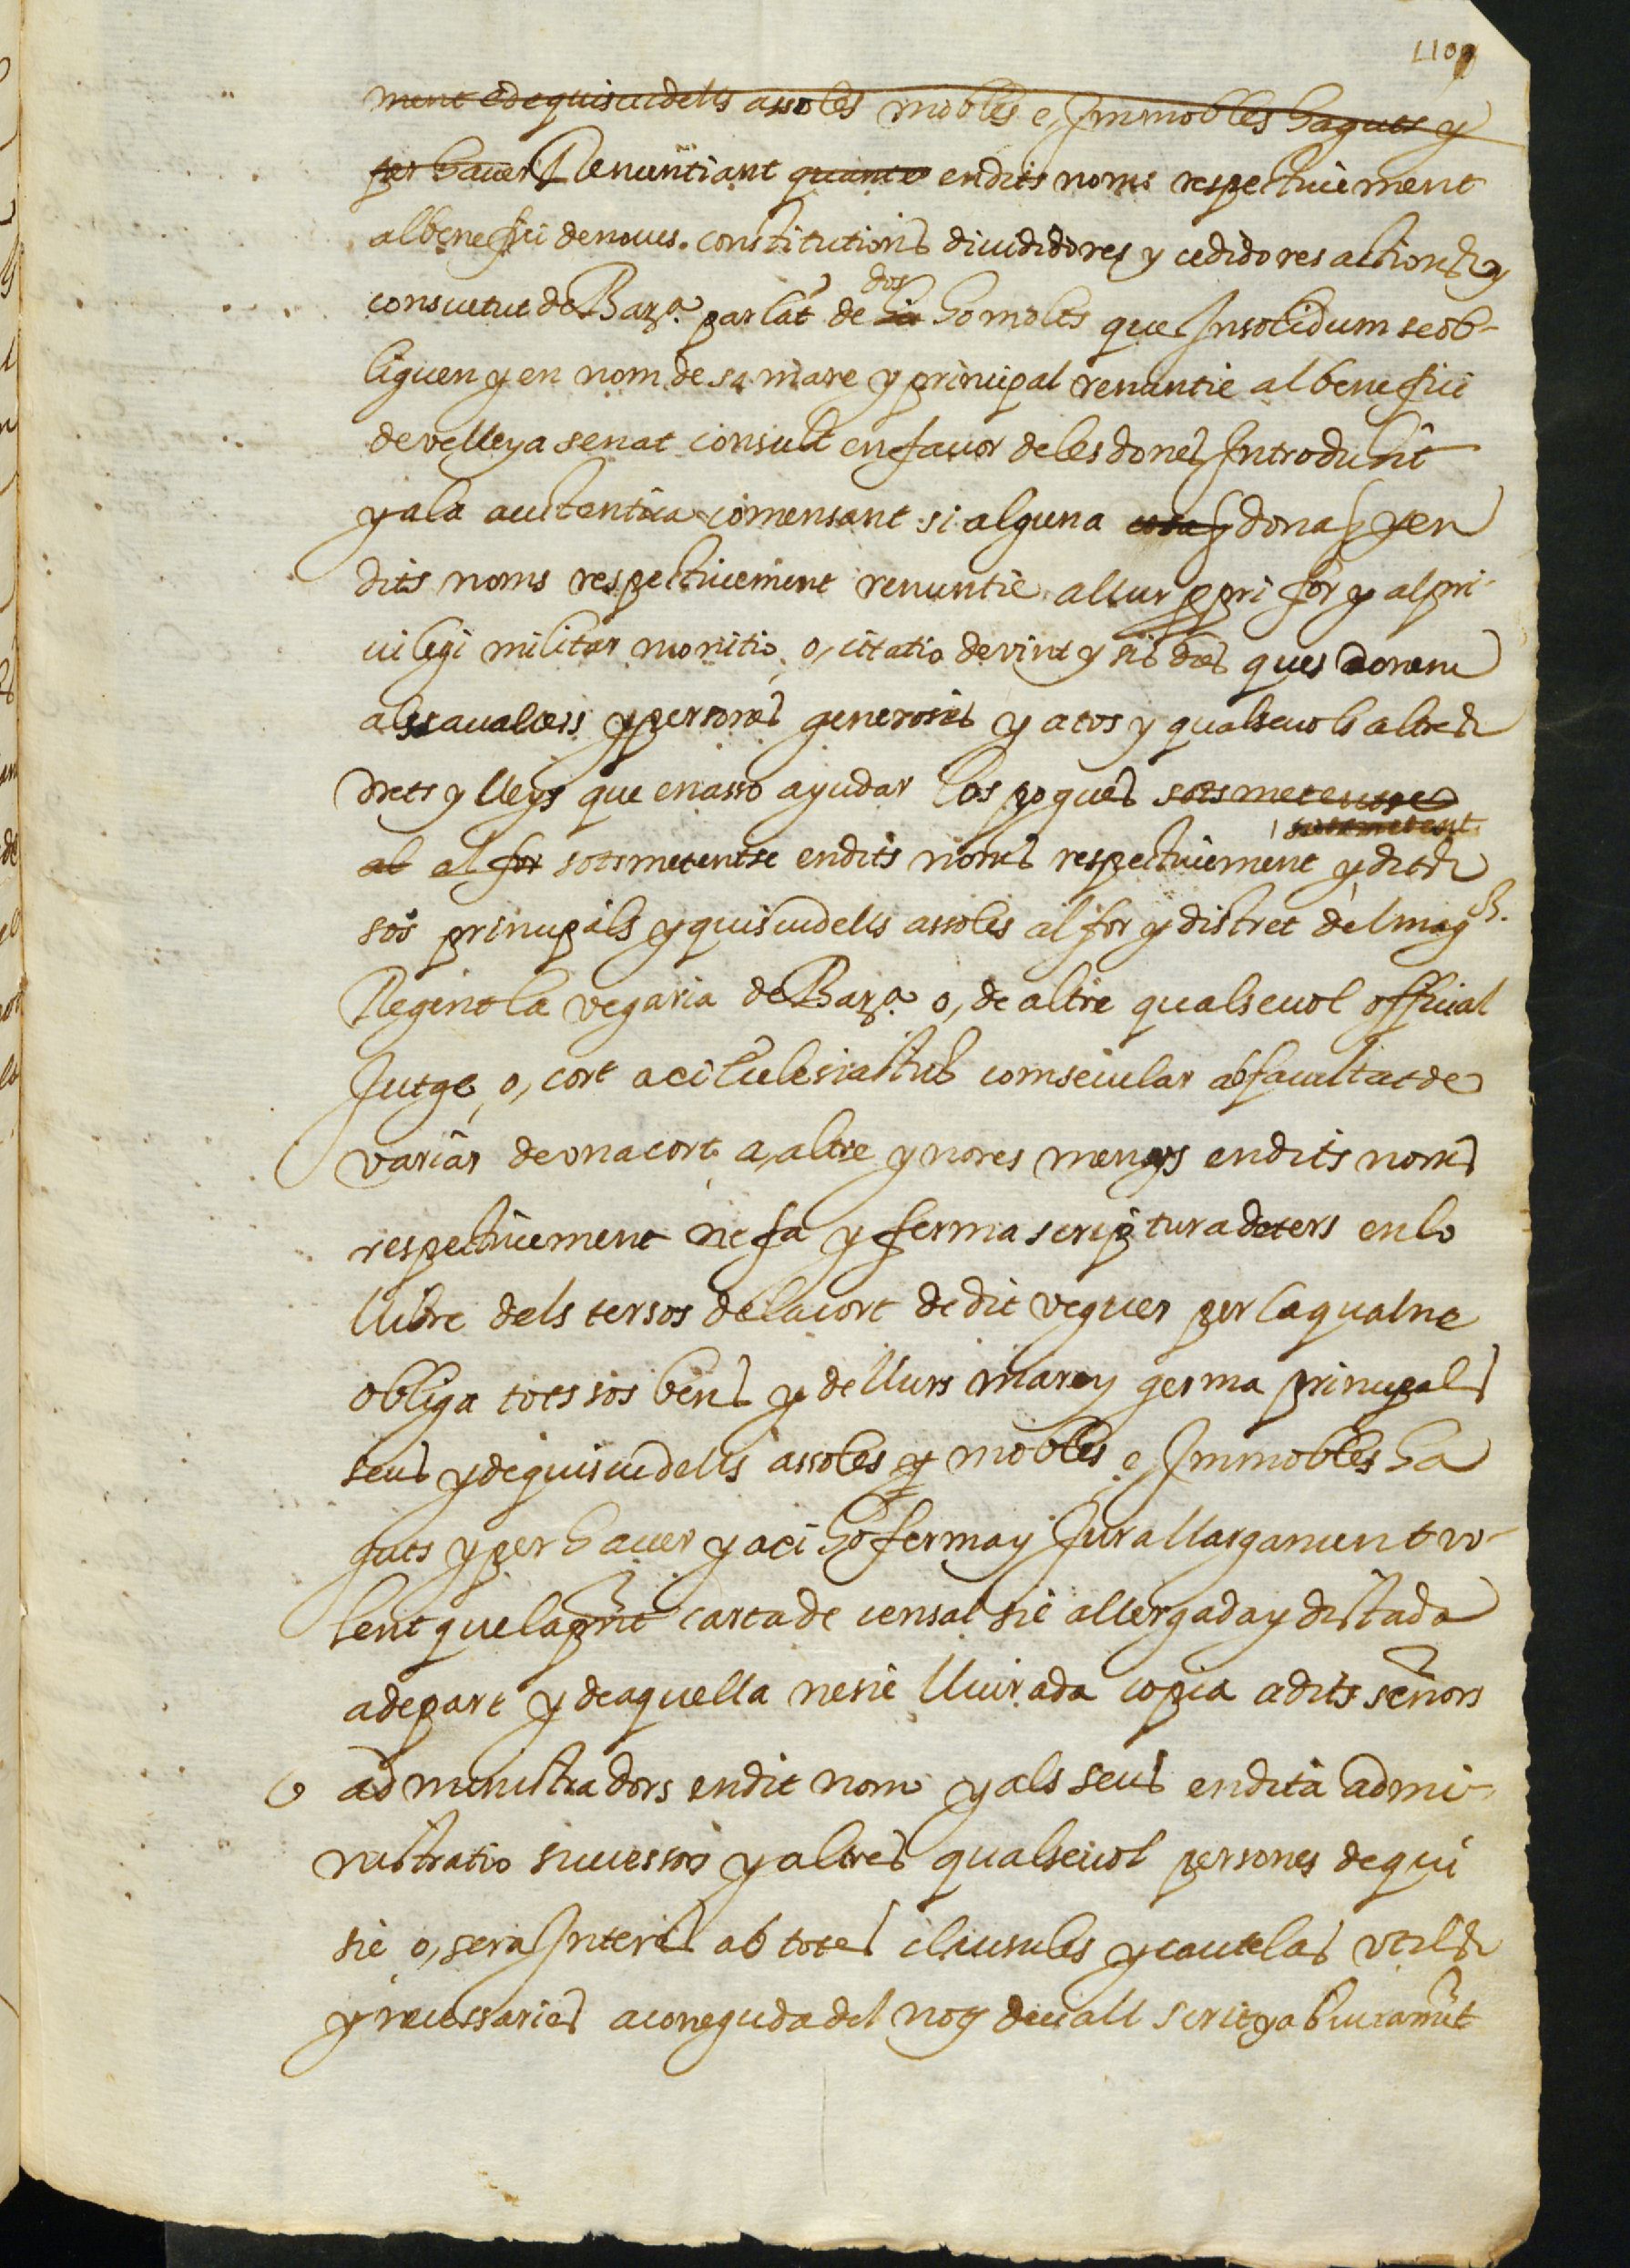 110
ment e de quiscu dells assoles mobles e, Immobles haguts y
per haver Renuntiant quant e en dits noms respectivement
al benefici de noves constitutions divididores y cedidores actions y
consuetut de Barᵃ. parlãt de dos ho molts que Insolidum se ob-
liguen y en nom de sa mare y principal renuntie al benefici
de velleya senat consult en favor de les dones Introduhit
y a la autentica comensant si alguna cosa y dona y en
dits noms respectivement renuntie a llur ppri for y al pri-
vilegi militar monitio, o, citatio de vint y sis dies ques donen
als cavallers y persones generoses y a tos y qualsevols altres
drets y lleys que en asso ajudar los pogues sotsmetentse
al al for sotsmetentse en dits noms respectivement sotsmetent y dits
sos principals y quiscu dells assoles al for y districte del magᶜʰ.
Regint la vegaria de Barᵃ. o, de altre qualsevol official
Jutge, o, cort axi ecclesiastich com secular ab facultat de
variar de una cort a, altre y no res menys en dits noms
respectivement ne fa y ferma scriptura de ters en lo
llibre dels tersos de la cort de dit veguer per la qual ne
obliga tots sos bens y de llurs mare y germa principals
seus y de quiscu dells assoles y mobles e, Immobles ha
guts y per haver y axi ho ferma y Jura llargament vo-
lent que la pñt carta de censal sie allergada y dictada
a de part y de aquella ne sie lliurada copia a dits señors
administradors en dit nom y als seus en dita admi-
nistratio successors y altres qualsevol persones de qui
sie o, sera Interes ab totes clausules y cautelas utils
y necessaries a coneguda del noʸ devall scrit y ab juramẽt